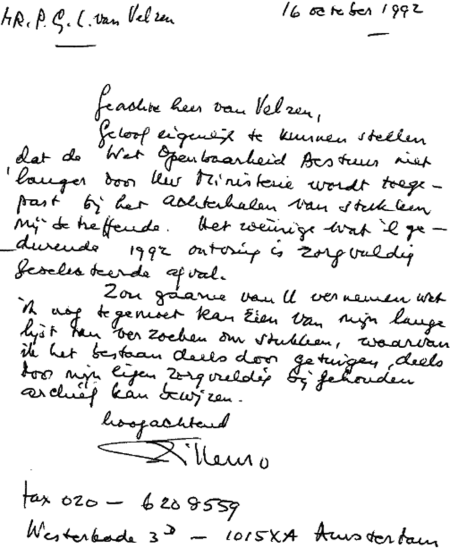 MR. P. G. C. van Velzen 16 october 1992
Geachte heer van Velzen,
Geloof eigenlijk te kunnen stellen
dat de Wet Openbaarheid Bestuur niet
langer door Uw Ministerie wordt toege-
past bij het achterhalen van stukken
mij betreffende. Het weinige wat ik ge-
durende 1992 ontving is zorgvuldig
geselecteerde afval.
Zou gaarne van U vernemen wat
ik nog tegemoet kan zien van mijn lange
lijst van verzoeken om stukken, waarvan
ik het bestaan deels door getuigen, deels
door mijn eigen zorgvuldig bijgehouden
archief kan bewijzen.
hoogachtend
fax 020 - 6208559
Westerkade 3D - 1015XA Amsterdam